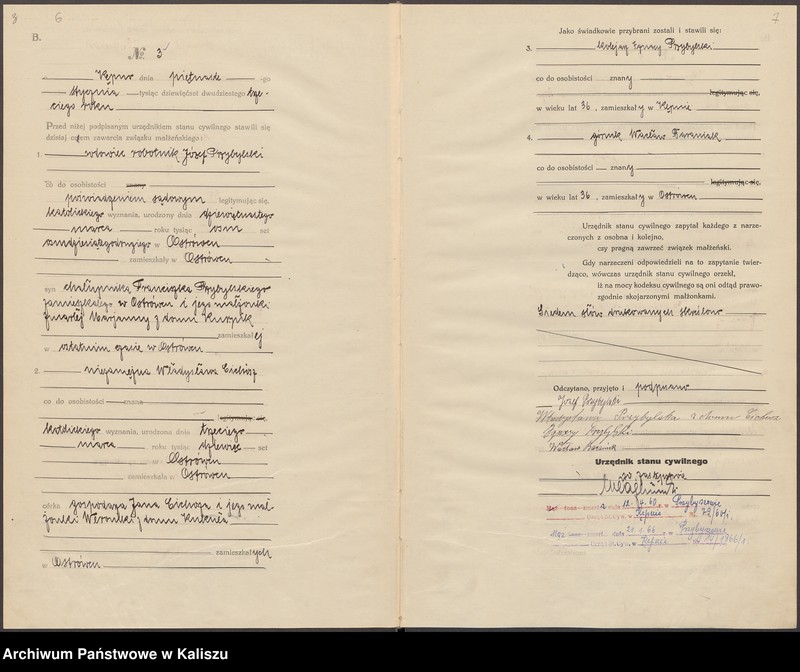 3 6
B.
№ 3
Kępno dnia piętnaste -go
stycznia tysiąc dziewięćset dwudziestego trze-
ciego roku
Przed niżej podpisanym urzędnikiem stanu cywilnego stawili się
dzisiaj celem zawarcia związku małżeńskiego:
1. wdowiec robotnik Józef Przybylski
co do osobistości znany
poświadczeniem sądowym legitymując się,
katolickiego wyznania, urodzony dnia dziewiętnastego
marca roku tysiąc osm set
osmdziesiątego w Ostrówcu
zamieszkały w Ostrówcu
syn chałupnika Franciszka Przybylskiego
zamieszkałego w Ostrówcu i jego małżonki
zmarłej Marjanny z domu Kurzpik
zamieszkałej
w ostatnim czasie w Ostrówcu
2. niezamężna Władysława Cichosz
co do osobistości znana
legitymując się,
katolickiego wyznania, urodzona dnia trzeciego
marca roku tysiąc dziewięć set
w Ostrówcu
zamieszkała w Ostrówcu
córka gospodarza Jana Cichosza i jego mał-
żonki Weroniki z domu
zamieszkałych
w Ostrówcu
7
Jako świadkowie przybrani zostali i stawili się:
3. kolejarz Ignacy Przybylski
co do osobistości znany
legitymując się,
w wieku lat 36, zamieszkały w Kępnie
4. górnik Wacław
co do osobistości znany
legitymując się,
w wieku lat 36, zamieszkały w Ostrówcu
Urzędnik stanu cywilnego zapytał każdego z narze-
czonych z osobna i kolejno,
czy pragną zawrzeć związek małżeński.
Gdy narzeczeni odpowiedzieli na to zapytanie twier-
dząco, wówczas urzędnik stanu cywilnego orzekł,
iż na mocy kodeksu cywilnego są oni odtąd prawo-
zgodnie skojarzonymi małżonkami.
Siedem słów drukowanych skreślono
Odczytano, przyjęto i podpisano
Józef Przybylski
Władysława Przybylska z domu Cichosz
Ignacy Przybylski
Wacław
Urzędnik stanu cywilnego
w zastępstwie
dnia 12.4.60 r. w
w Kępnie 72/60
Mąż dnia 21.1.66 r. w
w 1966 r.
Archiwum Państwowe w Kaliszu